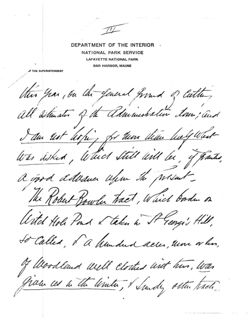 III
DEPARTMENT OF THE INTERIOR
NATIONAL PARK SERVICE
LAFAYETTE NATIONAL PARK
BAR HARBOR, MAINE
OF THE SUPERINTENDENT
this year, on the general ground of cutting
all estimates of the Administration down; and
I am not hoping for more than half what
was asked, which still will be, if granted,
a good advance upon the present.
The Robert Bowler tract, which borders on
Witch Hole Pond & takes in St George's Hill,
so called, & a hundred acres, more or less,
of woodland well clothed with trees, was
given us in the winter, & sundry other tracts.